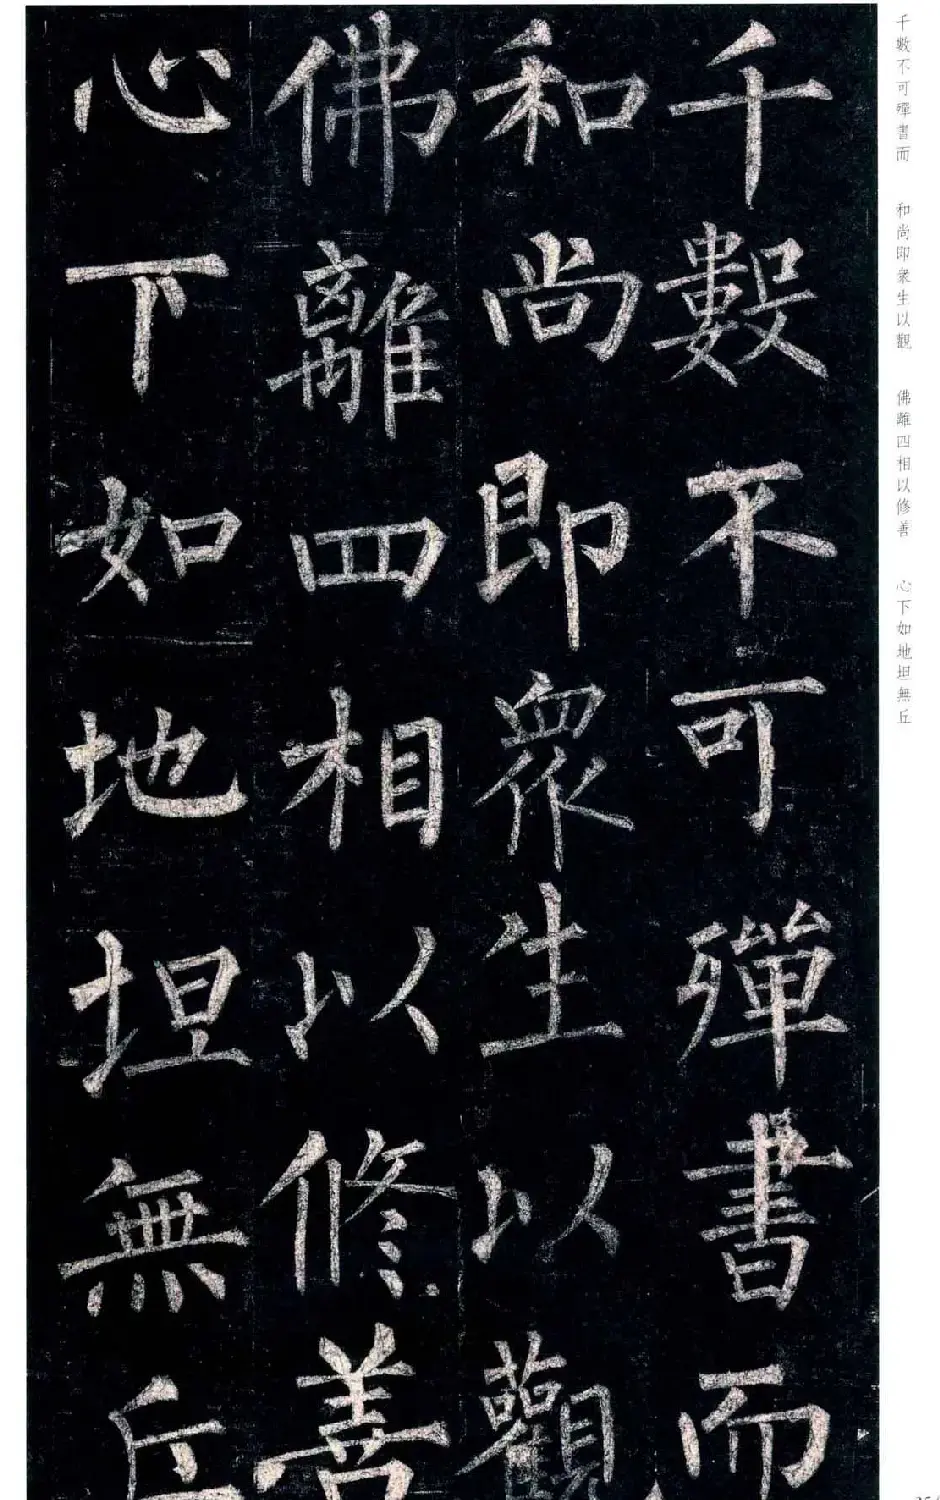 千數不可殫書而
和尚即衆生以觀
佛離四相以修善
心下如地坦無丘
千數不可殫書而
和尚即衆生以觀
佛離四相以修善
心下如地坦無丘